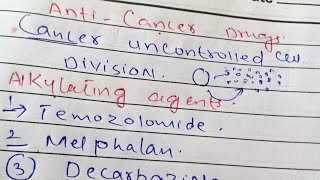 Anti-Cancer Drugs.
Cancer uncontrolled cell
Division.
Alkylating agents.
1 Temozolomide.
2 Melphalan.
③